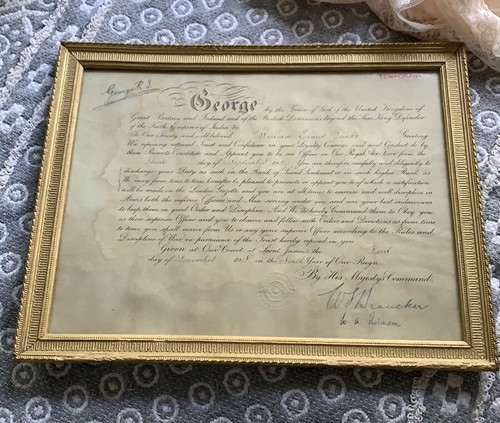 George R.I.
TEMPORARY
George by the Grace of God of the United Kingdom of
Great Britain and Ireland and of the British Dominions beyond the Seas King Defender
of the Faith Emperor of India &c.
To Our Trusty and well beloved William Greeting
We reposing especial Trust and Confidence in your Loyalty Courage and good Conduct do by
these Presents Constitute and Appoint you to be an Officer in Our Royal Air Force from the
day of You are therefore carefully and diligently to
discharge your Duty as such in the Rank of Second Lieutenant or in such higher Rank as
We may from time to time hereafter be pleased to promote or appoint you to of which a notification
will be made in the London Gazette and you are at all times to exercise and well discipline in
Arms both the inferior Officers and Men serving under you and use your best endeavours
to keep them in good Order and Discipline And We do hereby Command them to Obey you
as their superior Officer and you to observe and follow such Orders and Directions as from time
to time you shall receive from Us or any your superior Officer according to the Rules and
Discipline of War in pursuance of the Trust hereby reposed in you
Given at Our Court at Saint James's the
day of 1918 in the Ninth Year of Our Reign
By His Majesty's Command